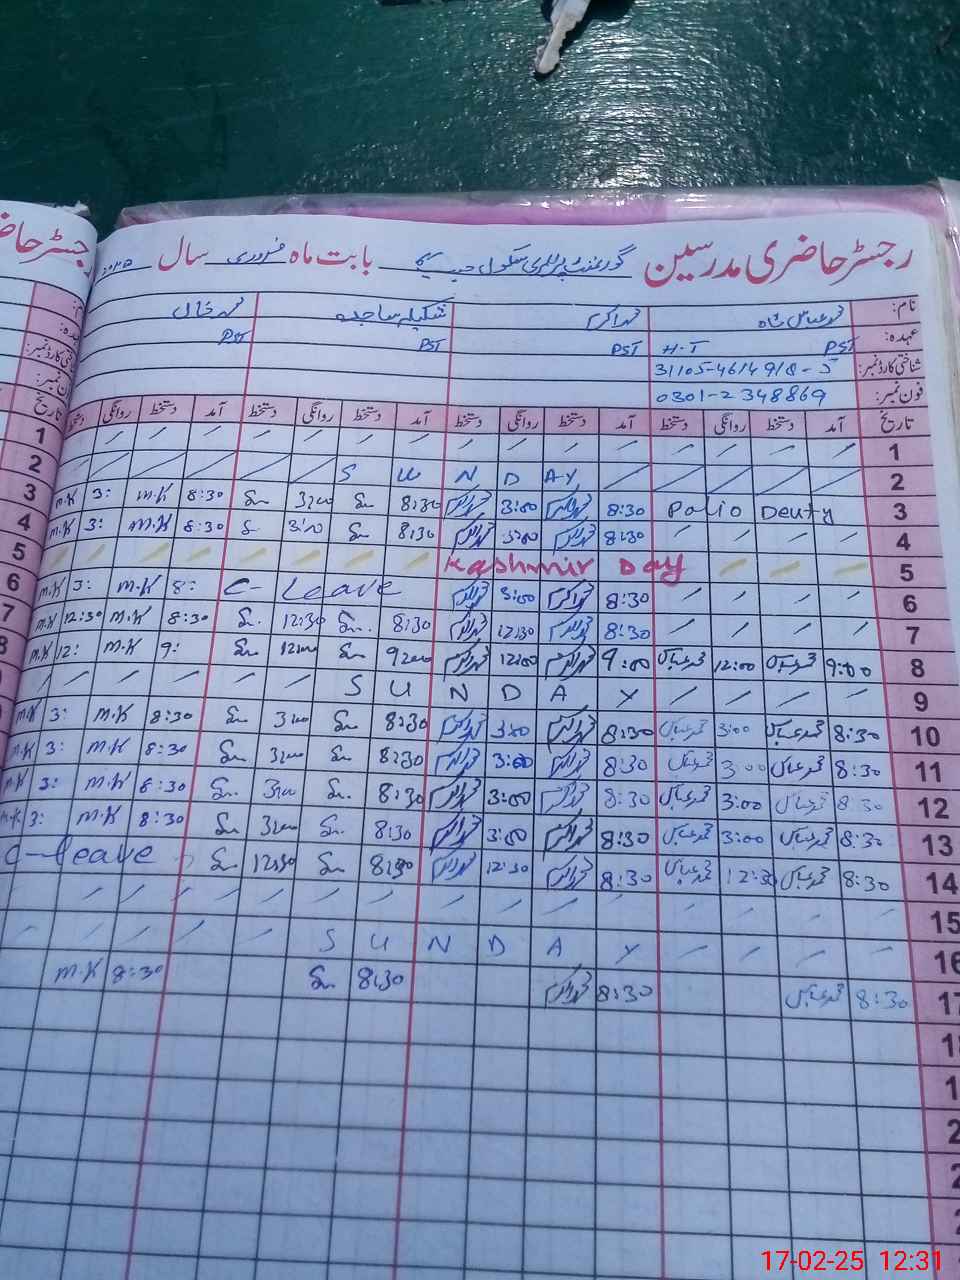 رجسٹر حاضری مدرسین گورنمنٹ پرائمری سکول بابت ماہ فروری سال
رجسٹر حاض
نام: محمد عباس شاہ محمد اکرم شکیلہ ساجدہ
عہدہ: PST H.T PST PST PST
شناختی کارڈ نمبر: 31105-4614918-5
فون نمبر: 0301-2348869
تاریخ آمد دستخط روانگی دستخط آمد دستخط روانگی دستخط آمد دستخط روانگی دستخط آمد دستخط روانگی دستخط
1 1
2 S U N D A Y 2
3 M.K 3: M.K 8:30 3:00 8:30 محمد اکرم 3:00 محمد اکرم 8:30 Polio Deuty 3
4 M.K 3: M.K 8:30 3:00 8:30 محمد اکرم 3:00 محمد اکرم 8:30 4
5 Kashmir Day 5
6 M.K 3: M.K 8: C-Leave محمد اکرم 3:00 محمد اکرم 8:30 6
7 M.K 12:30 M.K 8:30 12:30 8:30 محمد اکرم 12:30 محمد اکرم 8:30 7
8 M.K 12: M.K 9: 12:00 9:00 محمد اکرم 12:00 محمد اکرم 9:00 محمد عباس 12:00 محمد عباس 9:00 8
S U N D A Y 9
M.K 3: M.K 8:30 3:00 8:30 محمد اکرم 3:00 محمد اکرم 8:30 محمد عباس 3:00 محمد عباس 8:30 10
M.K 3: M.K 8:30 3:00 8:30 محمد اکرم 3:00 محمد اکرم 8:30 محمد عباس 3:00 محمد عباس 8:30 11
M.K 3: M.K 8:30 3:00 8:30 محمد اکرم 3:00 محمد اکرم 8:30 محمد عباس 3:00 محمد عباس 8:30 12
M.K 3: M.K 8:30 3:00 8:30 محمد اکرم 3:00 محمد اکرم 8:30 محمد عباس 3:00 محمد عباس 8:30 13
C-leave 12:30 8:30 محمد اکرم 12:30 محمد اکرم 8:30 محمد عباس 12:30 محمد عباس 8:30 14
15
S U N D A Y 16
M.K 8:30 8:30 محمد اکرم 8:30 محمد عباس 8:30 17
17-02-25 12:31